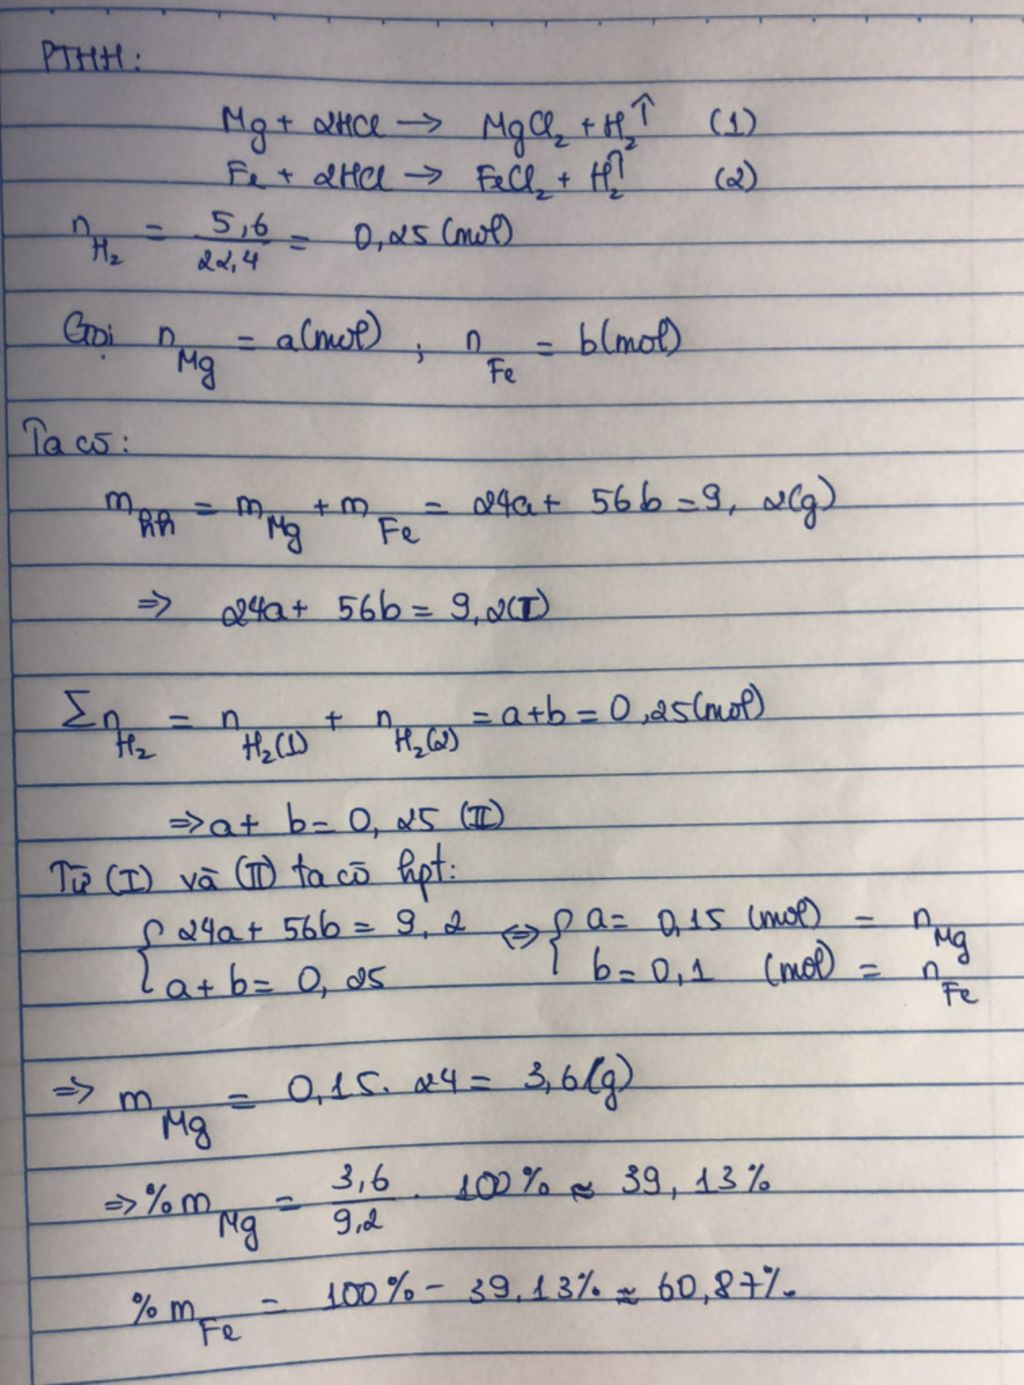 PTHH:
Mg + 2HCl → MgCl₂ + H₂↑ (1)
Fe + 2HCl → FeCl₂ + H₂↑ (2)
n_H₂ = 5,6/22,4 = 0,25 (mol)
Gọi n_Mg = a(mol) ; n_Fe = b(mol)
Ta có:
m_hh = m_Mg + m_Fe = 24a + 56b = 9,2(g)
⇒ 24a + 56b = 9,2(I)
Σn_H₂ = n_H₂(1) + n_H₂(2) = a+b = 0,25(mol)
⇒ a + b = 0,25 (II)
Từ (I) và (II) ta có hpt:
{ 24a + 56b = 9,2 ⇔ { a = 0,15 (mol) = n_Mg
a + b = 0,25 b = 0,1 (mol) = n_Fe
⇒ m_Mg = 0,15. 24 = 3,6(g)
⇒ %m_Mg = 3,6/9,2 . 100% ≈ 39,13%
%m_Fe = 100% - 39,13% ≈ 60,87%.